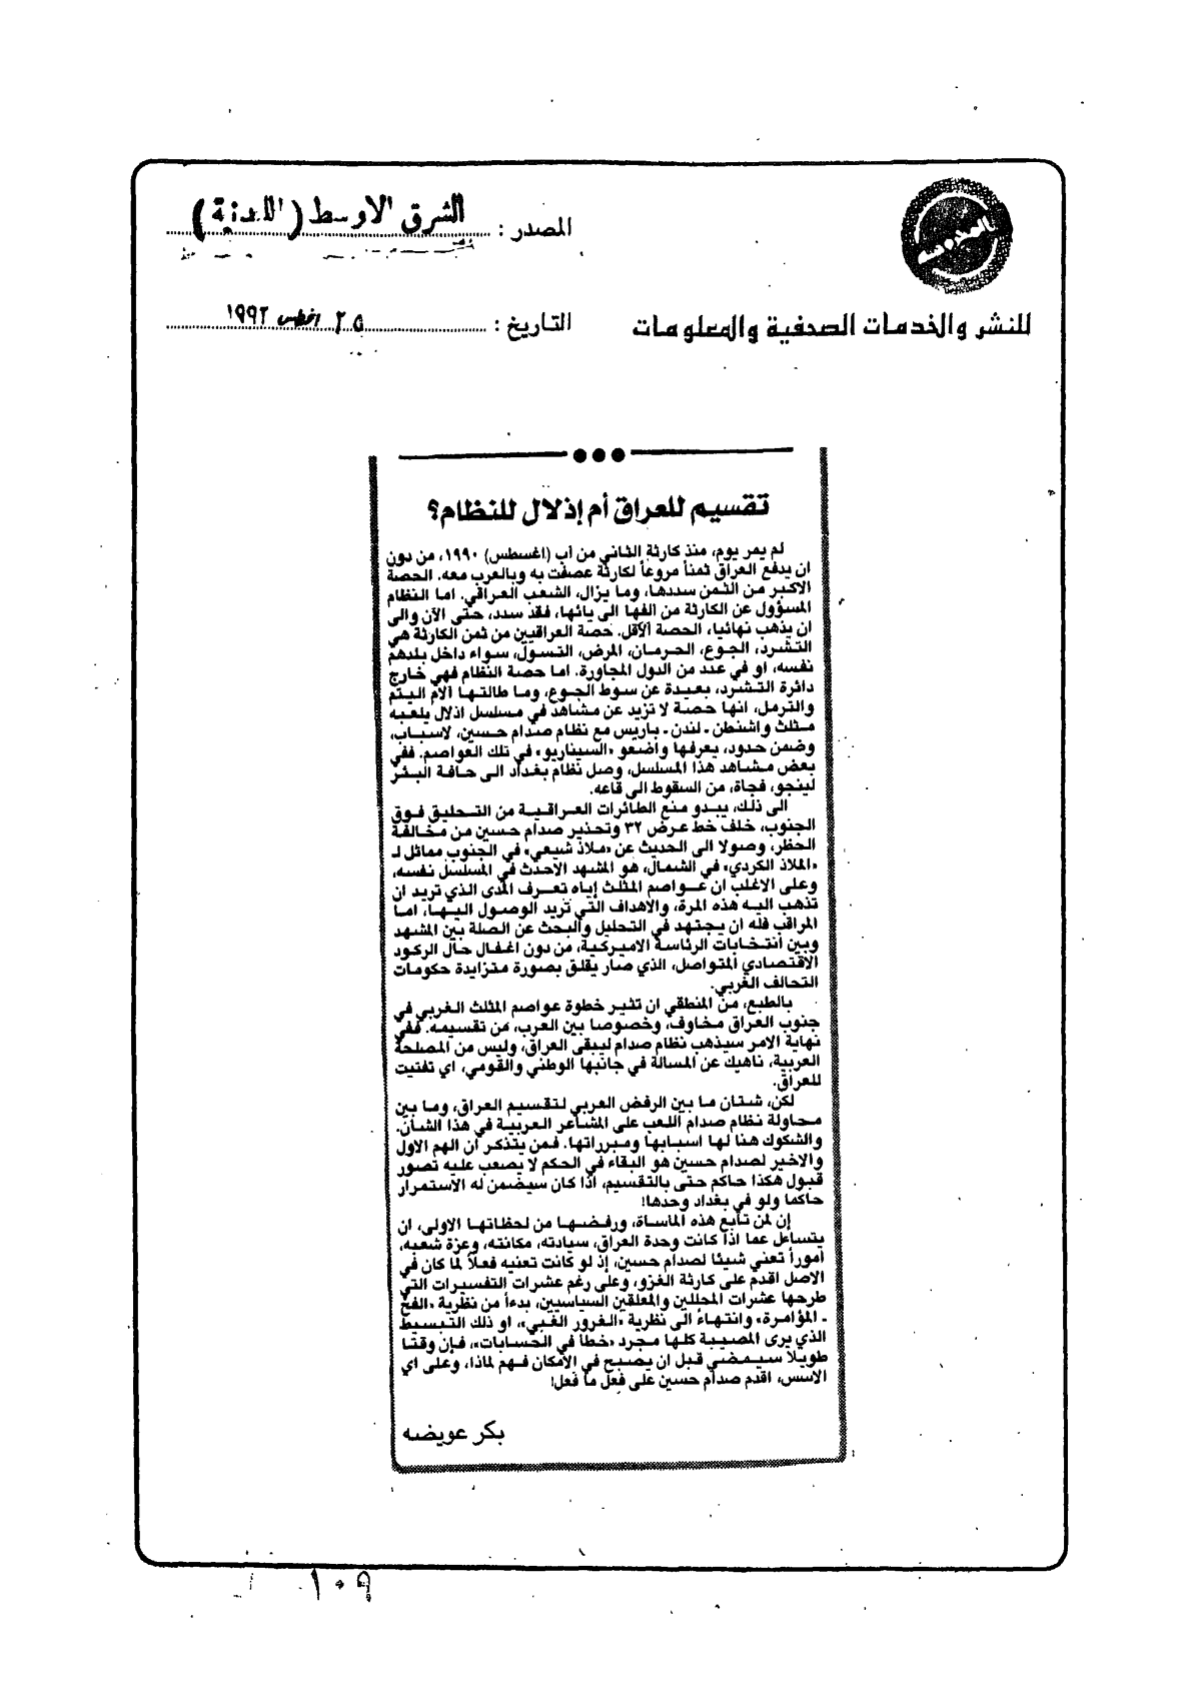 المصدر : الشرق الاوسط (اللندنية)
للنشر والخدمات الصحفية والمعلومات
التاريخ : ٢٥ اغسطس ١٩٩٢
تقسيم للعراق أم إذلال للنظام؟
لم يمر يوم، منذ كارثة الثاني من آب (اغسطس) ١٩٩٠، من دون
ان يدفع العراق ثمناً مروعاً لكارثة عصفت به وبالعرب معه. الحصة
الاكبر من الثمن سددها، وما يزال، الشعب العراقي. اما النظام
المسؤول عن الكارثة من الفها الى يائها، فقد سدد، حتى الآن والى
ان يذهب نهائيا، الحصة الأقل. حصة العراقيين من ثمن الكارثة هي
التشرد، الجوع، الحرمان، المرض، التسول، سواء داخل بلدهم
نفسه، او في عدد من الدول المجاورة. اما حصة النظام فهي خارج
دائرة التشرد، بعيدة عن سوط الجوع، وما طالتها آلام اليتم
والترمل، انها حصة لا تزيد عن مشاهد في مسلسل اذلال يلعبه
مثلث واشنطن ـ لندن ـ باريس مع نظام صدام حسين، لاسباب،
وضمن حدود، يعرفها واضعو «السيناريو» في تلك العواصم. ففي
بعض مشاهد هذا المسلسل، وصل نظام بغداد الى حافة البئر
لينجو، فجأة، من السقوط الى قاعه.
الى ذلك، يبدو منع الطائرات العراقية من التحليق فوق
الجنوب، خلف خط عرض ٣٢ وتحذير صدام حسين من مخالفة
الحظر، وصولا الى الحديث عن «ملاذ شيعي» في الجنوب مماثل لـ
«الملاذ الكردي» في الشمال، هو المشهد الاحدث في المسلسل نفسه،
وعلى الاغلب ان عواصم المثلث إياه تعرف المدى الذي تريد ان
تذهب اليه هذه المرة، والاهداف التي تريد الوصول اليها، اما
المراقب فله ان يجتهد في التحليل والبحث عن الصلة بين المشهد
وبين انتخابات الرئاسة الاميركية، من دون اغفال حال الركود
الاقتصادي المتواصل، الذي صار يقلق بصورة متزايدة حكومات
التحالف الغربي.
بالطبع، من المنطقي ان تثير خطوة عواصم المثلث الغربي في
جنوب العراق مخاوف، وخصوصا بين العرب، من تقسيمه. ففي
نهاية الامر سيذهب نظام صدام ليبقى العراق، وليس من المصلحة
العربية، ناهيك عن المسألة في جانبها الوطني والقومي، اي تفتيت
للعراق.
لكن، شتان ما بين الرفض العربي لتقسيم العراق، وما بين
محاولة نظام صدام اللعب على المشاعر العربية في هذا الشأن.
والشكوك هنا لها اسبابها ومبرراتها. فمن يتذكر ان الهم الاول
والاخير لصدام حسين هو البقاء في الحكم لا يصعب عليه تصور
قبول هكذا حاكم حتى بالتقسيم، اذا كان سيضمن له الاستمرار
حاكما ولو في بغداد وحدها!
إن لمن تابع هذه المأساة، ورفضها من لحظاتها الاولى، ان
يتساءل عما اذا كانت وحدة العراق، سيادته، مكانته، وعزة شعبه،
أموراً تعني شيئا لصدام حسين، إذ لو كانت تعنيه فعلاً لما كان في
الاصل اقدم على كارثة الغزو، وعلى رغم عشرات التفسيرات التي
طرحها عشرات المحللين والمعلقين السياسيين، بدءاً من نظرية «الفخ
ـ المؤامرة» وانتهاءً الى نظرية «الغرور الغبي»، او ذلك التبسيط
الذي يرى المصيبة كلها مجرد «خطأ في الحسابات»، فإن وقتا
طويلاً سيمضي قبل ان يصبح في الامكان فهم لماذا، وعلى اي
الاسس، اقدم صدام حسين على فعل ما فعل!
بكر عويضه
١٠٩